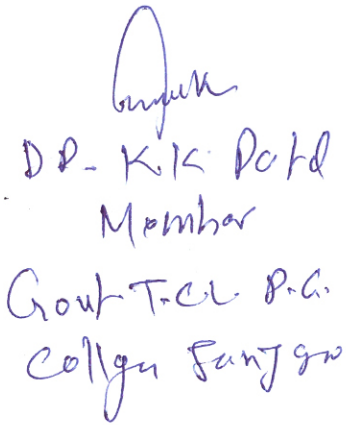 DR. K.K. Patel
Member
Govt T.C.L. P.G.
College Janjgir